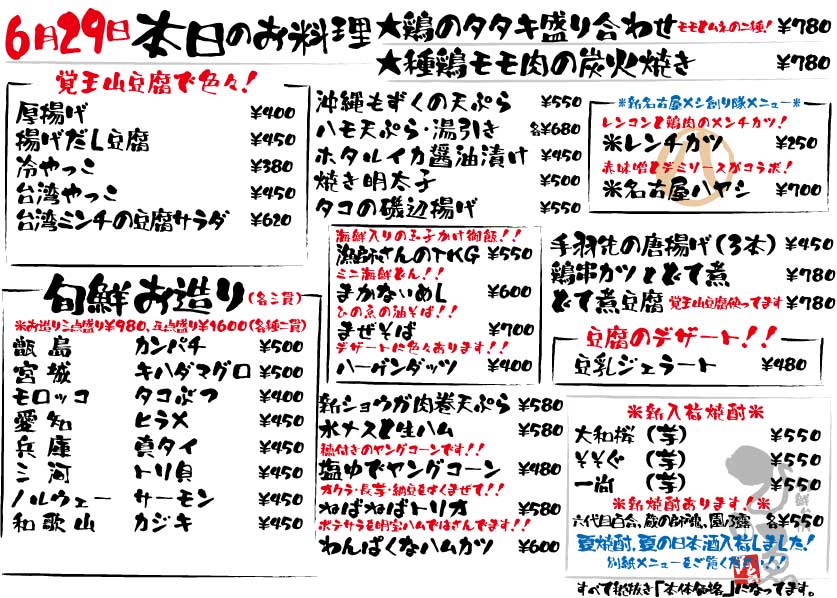 6月29日 本日のお料理
★鶏のタタキ盛り合わせ モモとムネの二種! ¥780
★種鶏モモ肉の炭火焼き ¥780
覚王山豆腐で色々!
厚揚げ ¥400
揚げだし豆腐 ¥450
冷やっこ ¥380
台湾やっこ ¥450
台湾ミンチの豆腐サラダ ¥620
旬鮮お造り(各三貫)
※お造り三点盛り¥980、五点盛り¥1600(各種二貫)
甑島 カンパチ ¥500
宮城 キハダマグロ ¥500
モロッコ タコぶつ ¥400
愛知 ヒラメ ¥450
兵庫 真タイ ¥450
三河 トリ貝 ¥450
ノルウェー サーモン ¥450
和歌山 カジキ ¥450
沖縄もずくの天ぷら ¥550
ハモ天ぷら・湯引き 各¥680
ホタルイカ醤油漬け ¥450
焼き明太子 ¥500
タコの磯辺揚げ ¥550
海鮮入りの玉子かけ御飯!!
漁師さんのTKG ¥550
ミニ海鮮どん!!
まかないめし ¥600
ひの系の油そば!!
まぜそば ¥700
デザートに色々あります!!
ハーゲンダッツ ¥400
新ショウガ肉巻天ぷら ¥580
水ナスと生ハム ¥580
穂付きのヤングコーンです!!
塩ゆでヤングコーン ¥480
オクラ・長芋・納豆をよくまぜて!!
ねばねばトリオ ¥580
ポテサラを明宝ハムではさんでます!!
わんぱくなハムカツ ¥600
※新名古屋メシ創り隊メニュー※
レンコンと鶏肉のメンチカツ!
※レンチカツ ¥250
赤味噌とデミソースがコラボ!
※名古屋ハヤシ ¥700
手羽先の唐揚げ(3本) ¥450
鶏串カツとどて煮 ¥780
どて煮豆腐 覚王山豆腐使ってます ¥780
豆腐のデザート!!
豆乳ジェラート ¥480
※新入荷焼酎※
大和桜(芋) ¥550
そそぐ(芋) ¥550
一尚(芋) ¥550
※新焼酎あります!※
六代目百合、蔵の師魂、園乃露 各¥550
夏焼酎、夏の日本酒入荷しました!
別紙メニューをご覧ください!!
すべて税抜き「本体価格」になってます。